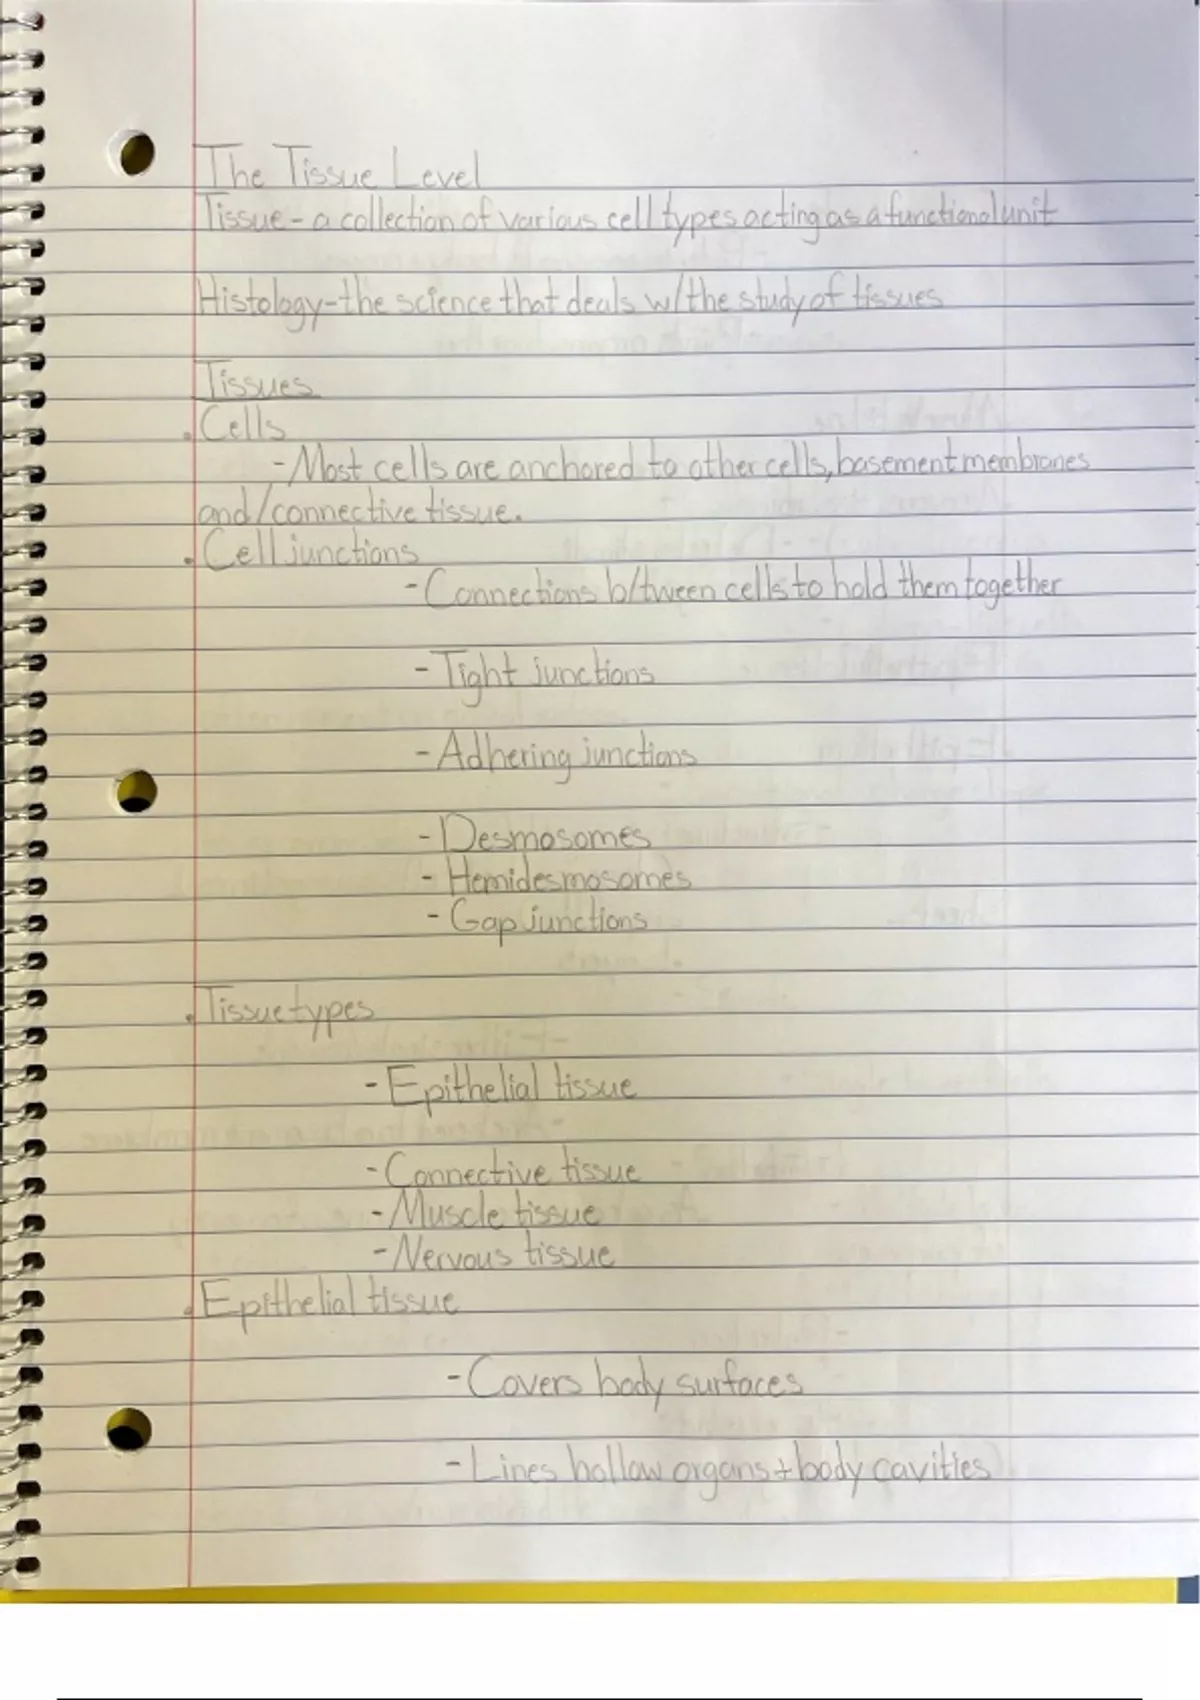 The Tissue Level
Tissue - a collection of various cell types acting as a functional unit
Histology - the science that deals w/ the study of tissues
Tissues
• Cells
- Most cells are anchored to other cells, basement membranes
and/connective tissue.
• Cell junctions
- Connections b/tween cells to hold them together
- Tight junctions
- Adhering junctions
- Desmosomes
- Hemidesmosomes
- Gap junctions
• Tissue types
- Epithelial tissue
- Connective tissue
- Muscle tissue
- Nervous tissue
• Epithelial tissue
- Covers body surfaces
- Lines hollow organs + body cavities